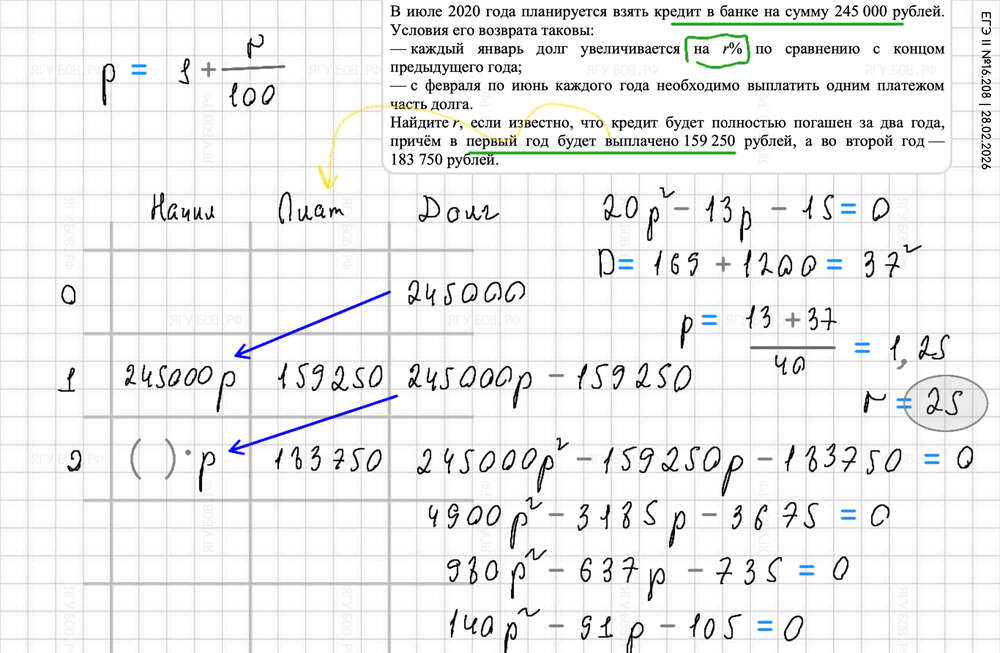 В июле 2020 года планируется взять кредит в банке на сумму 245 000 рублей.
Условия его возврата таковы:
— каждый январь долг увеличивается на r% по сравнению с концом
предыдущего года;
— с февраля по июнь каждого года необходимо выплатить одним платежом
часть долга.
Найдите r, если известно, что кредит будет полностью погашен за два года,
причём в первый год будет выплачено 159 250 рублей, а во второй год —
183 750 рублей.
ЕГЭ II №16.208 | 28.02.2026
p = 1 + r/100
Начил Плат Долг
0 245000
1 245000p 159250 245000p − 159250
2 ( )·p 183750 245000p² − 159250p − 183750 = 0
4900p² − 3185p − 3675 = 0
980p² − 637p − 735 = 0
140p² − 91p − 105 = 0
20p² − 13p − 15 = 0
D = 169 + 1200 = 37²
p = (13 + 37)/40 = 1,25
r = 25